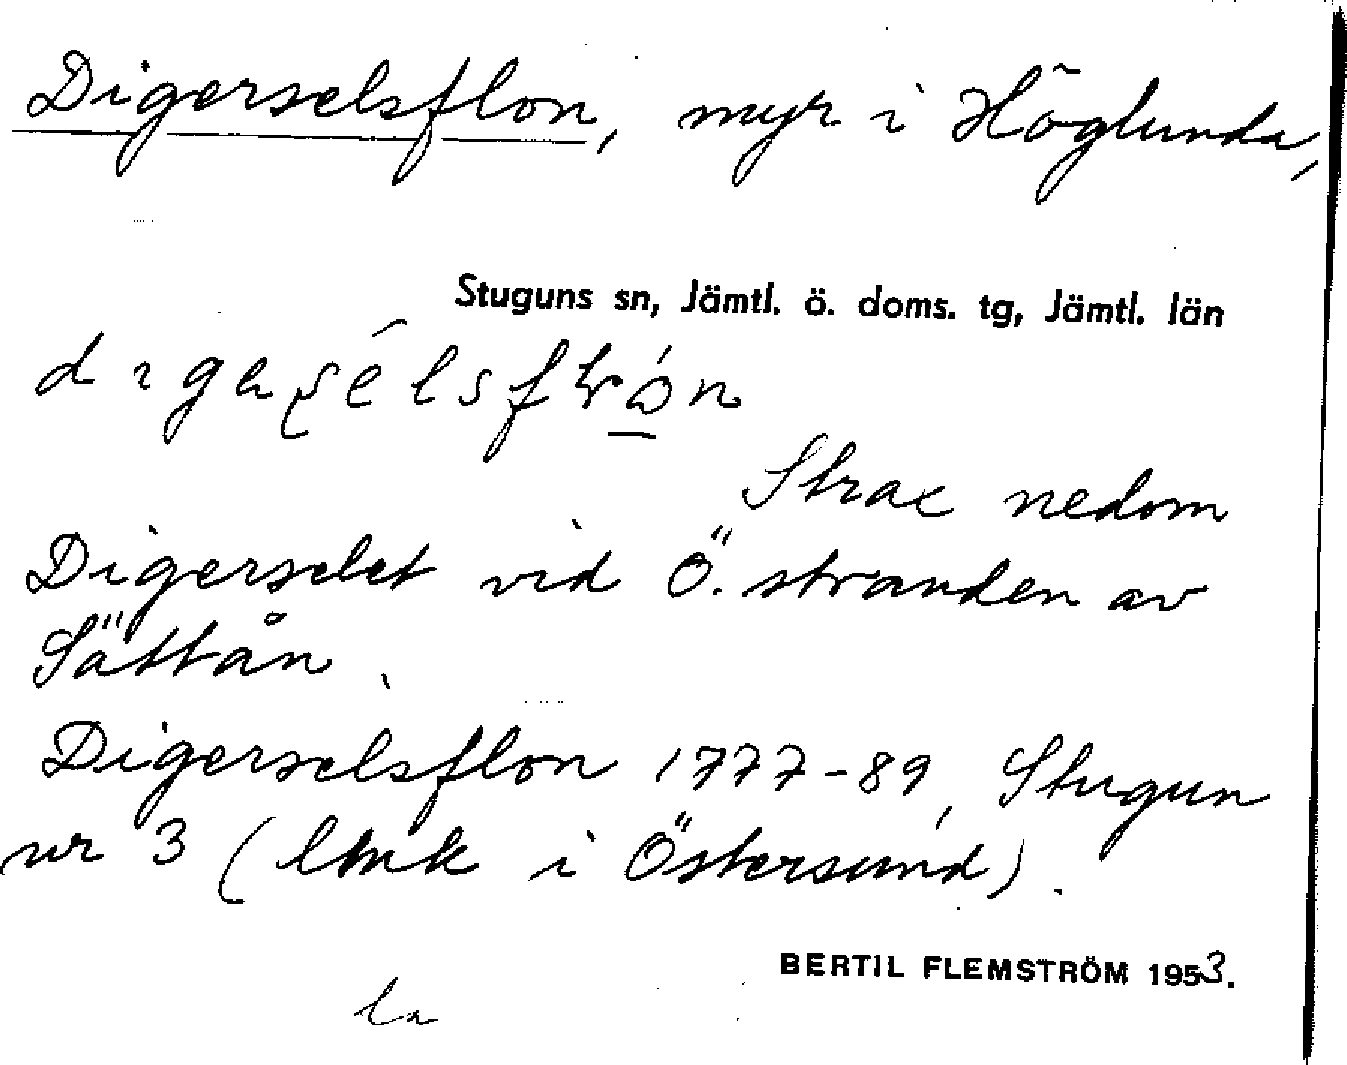 Digerselsflon, myr i Höglunda,
Stuguns sn, Jämtl. ö. doms. tg, Jämtl. län
Strax nedom
Digerselet vid Ö. stranden av
Sättån.
Digerselsflon 1777-89, Stugun
nr 3 (lmk i Östersund).
BERTIL FLEMSTRÖM 1953.